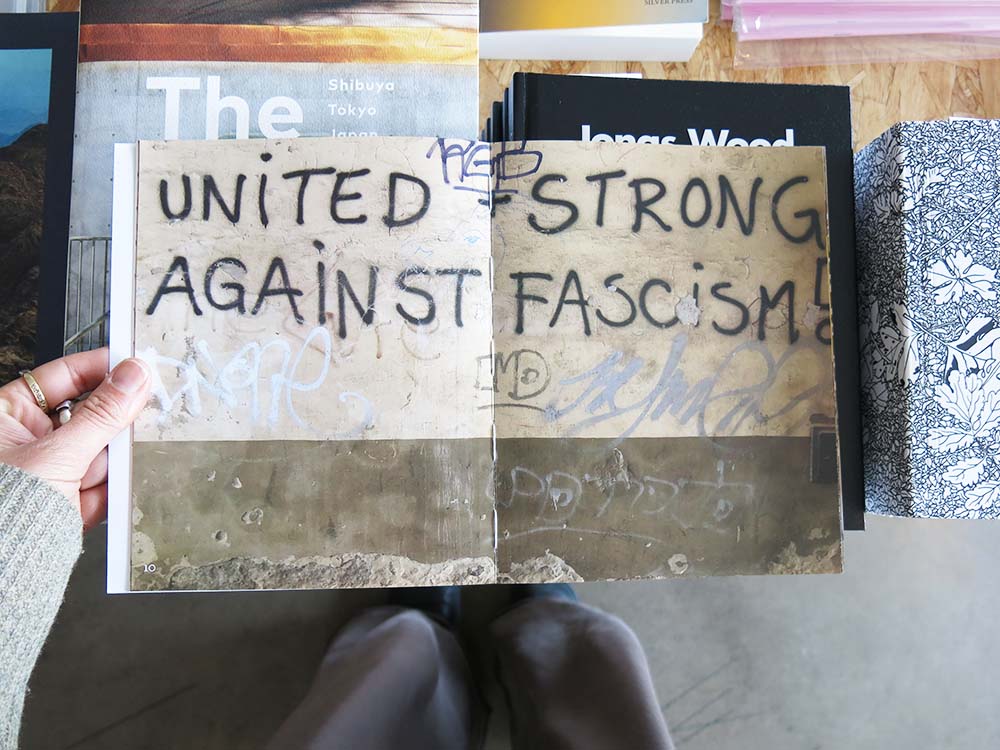 SILVER PRESS
The
Shibuya
Tokyo
Japan
Jonas Wood
UNiTED = STRONG
AGAiNST FASCiSM!
10